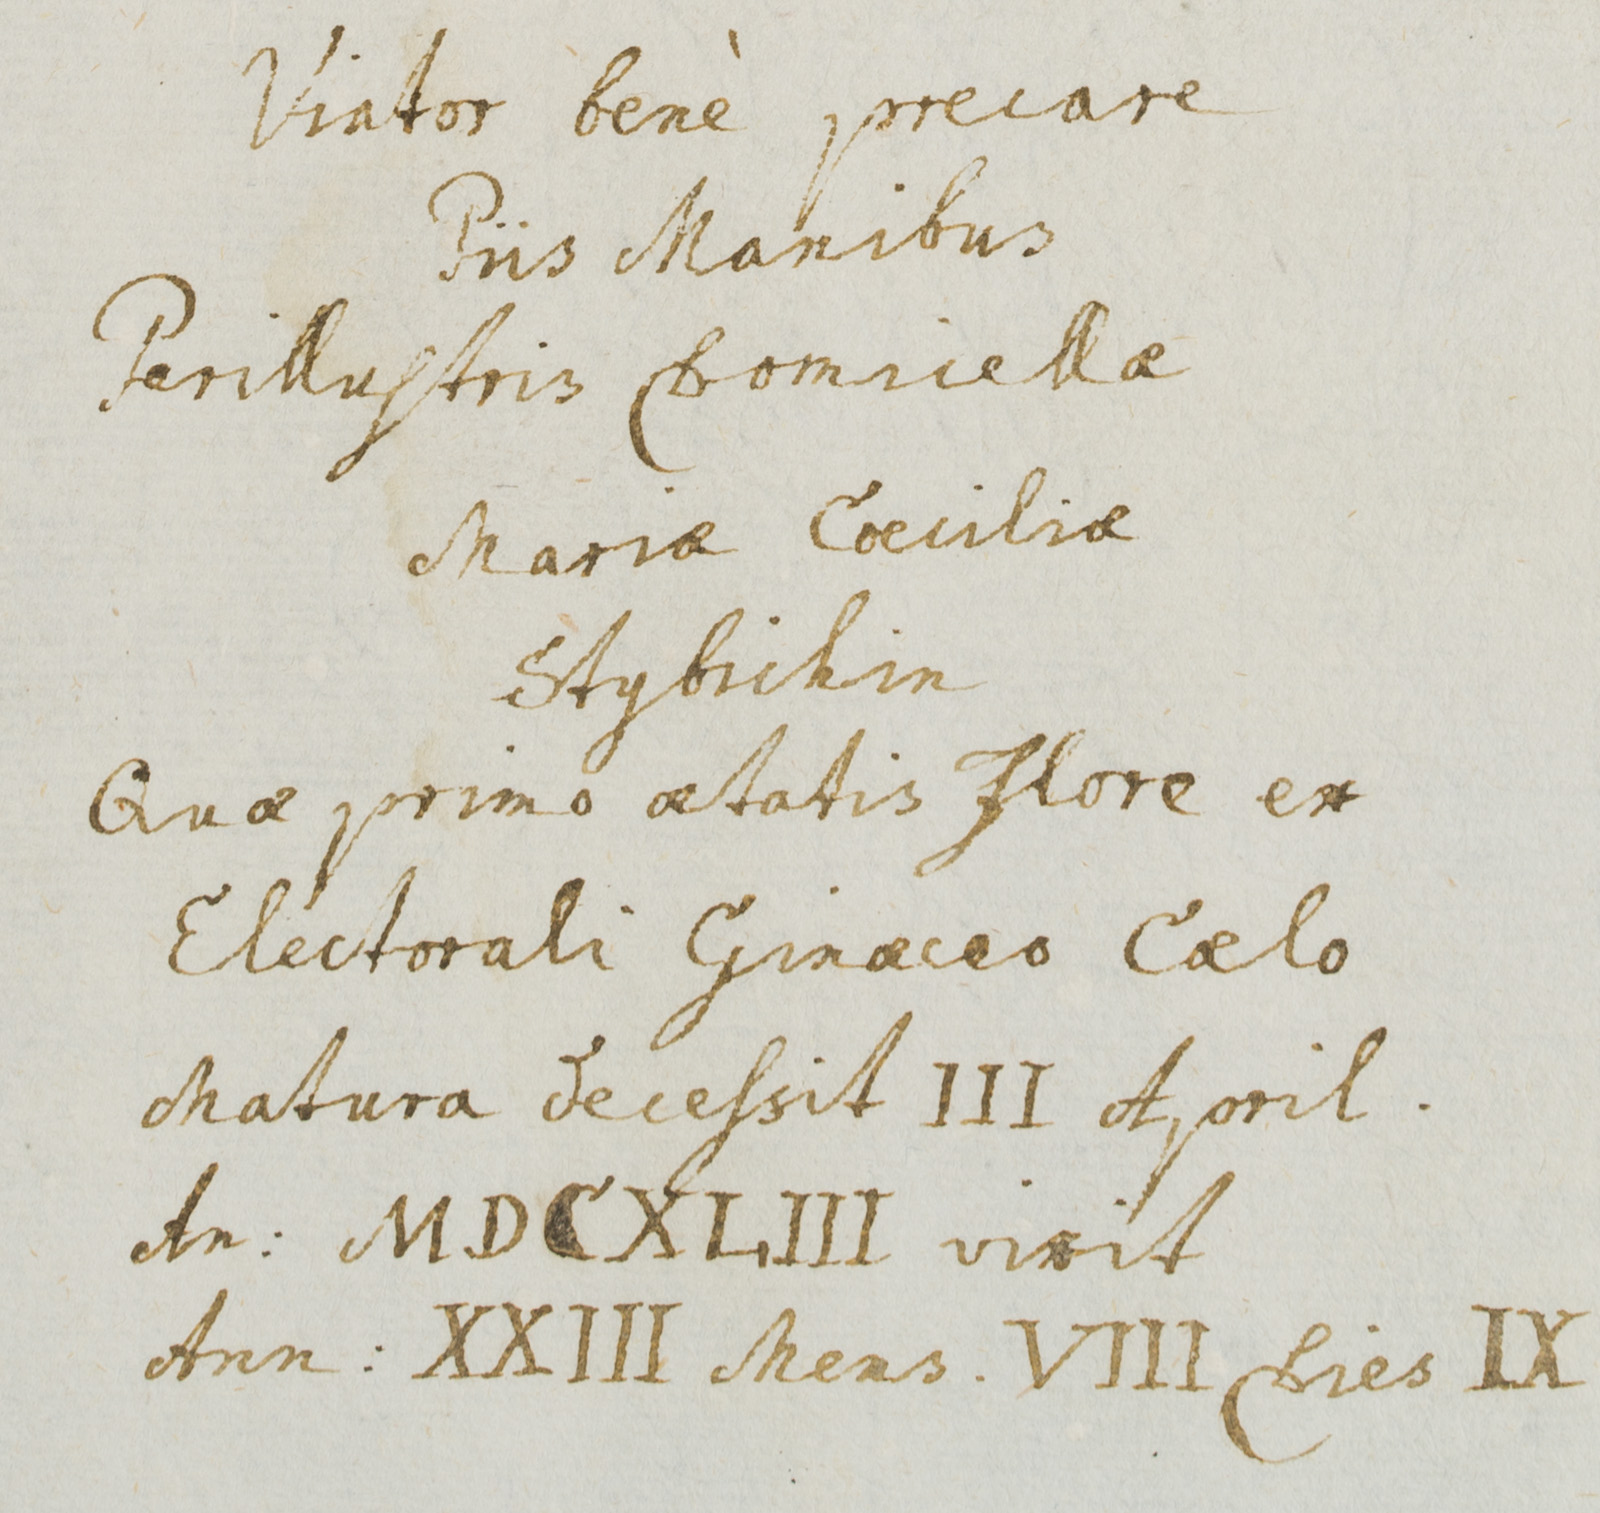 Viator benè precare
Piis Manibus
Perillustris Domicellæ
Mariæ Cœciliæ
Stybichin
Quæ primo ætatis Flore ex
Electorali Ginæceo Cælo
Matura decessit III April.
An: MDCXLIII vixit
Ann: XXIII Mens. VIII Dies IX